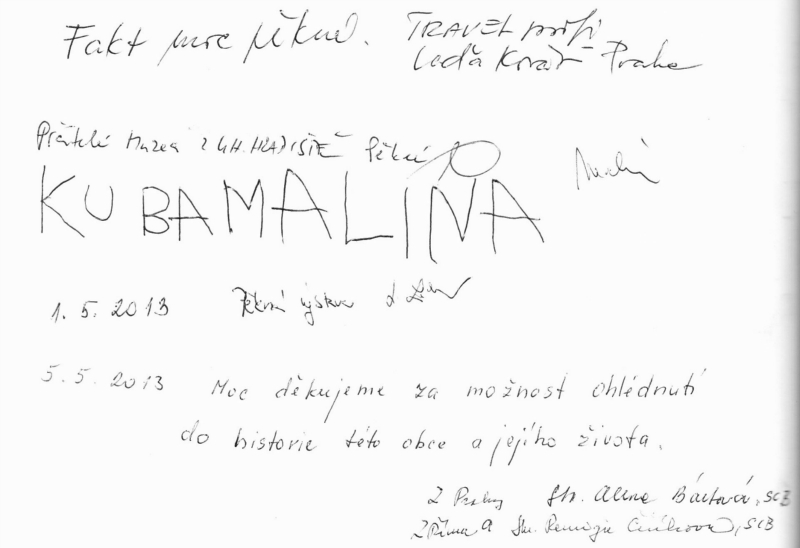 Fakt moc pěkné. TRAVEL profi
Praha
Přátelé Muzea z UH. HRADIŠTĚ Pěkné
KUBA MALINA
1. 5. 2013 Pěkná výstava
5. 5. 2013 Moc děkujeme za možnost ohlédnutí
do historie této obce a jejího života.
Z Prahy Sr. Alena Bártová, SCB
Z Říma a Sr. Remigie Češíková, SCB